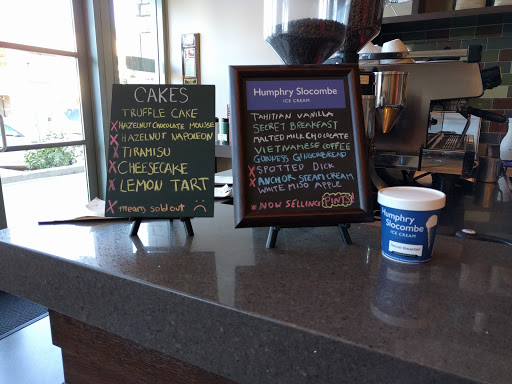 CAKES
TRUFFLE CAKE
X HAZELNUT CHOCOLATE MOUSSE
X HAZELNUT NAPOLEON
X TIRAMISU
X CHEESECAKE
X LEMON TART
X means sold out
Humphry Slocombe
ICE CREAM
TAHITIAN VANILLA
SECRET BREAKFAST
MALTED MILK CHOCOLATE
VIETNAMESE COFFEE
GUINNESS GINGERBREAD
X SPOTTED DICK
X ANCHOR STEAM CREAM
WHITE MISO APPLE
* NOW SELLING PINTS!
Humphry
Slocombe
ICE CREAM